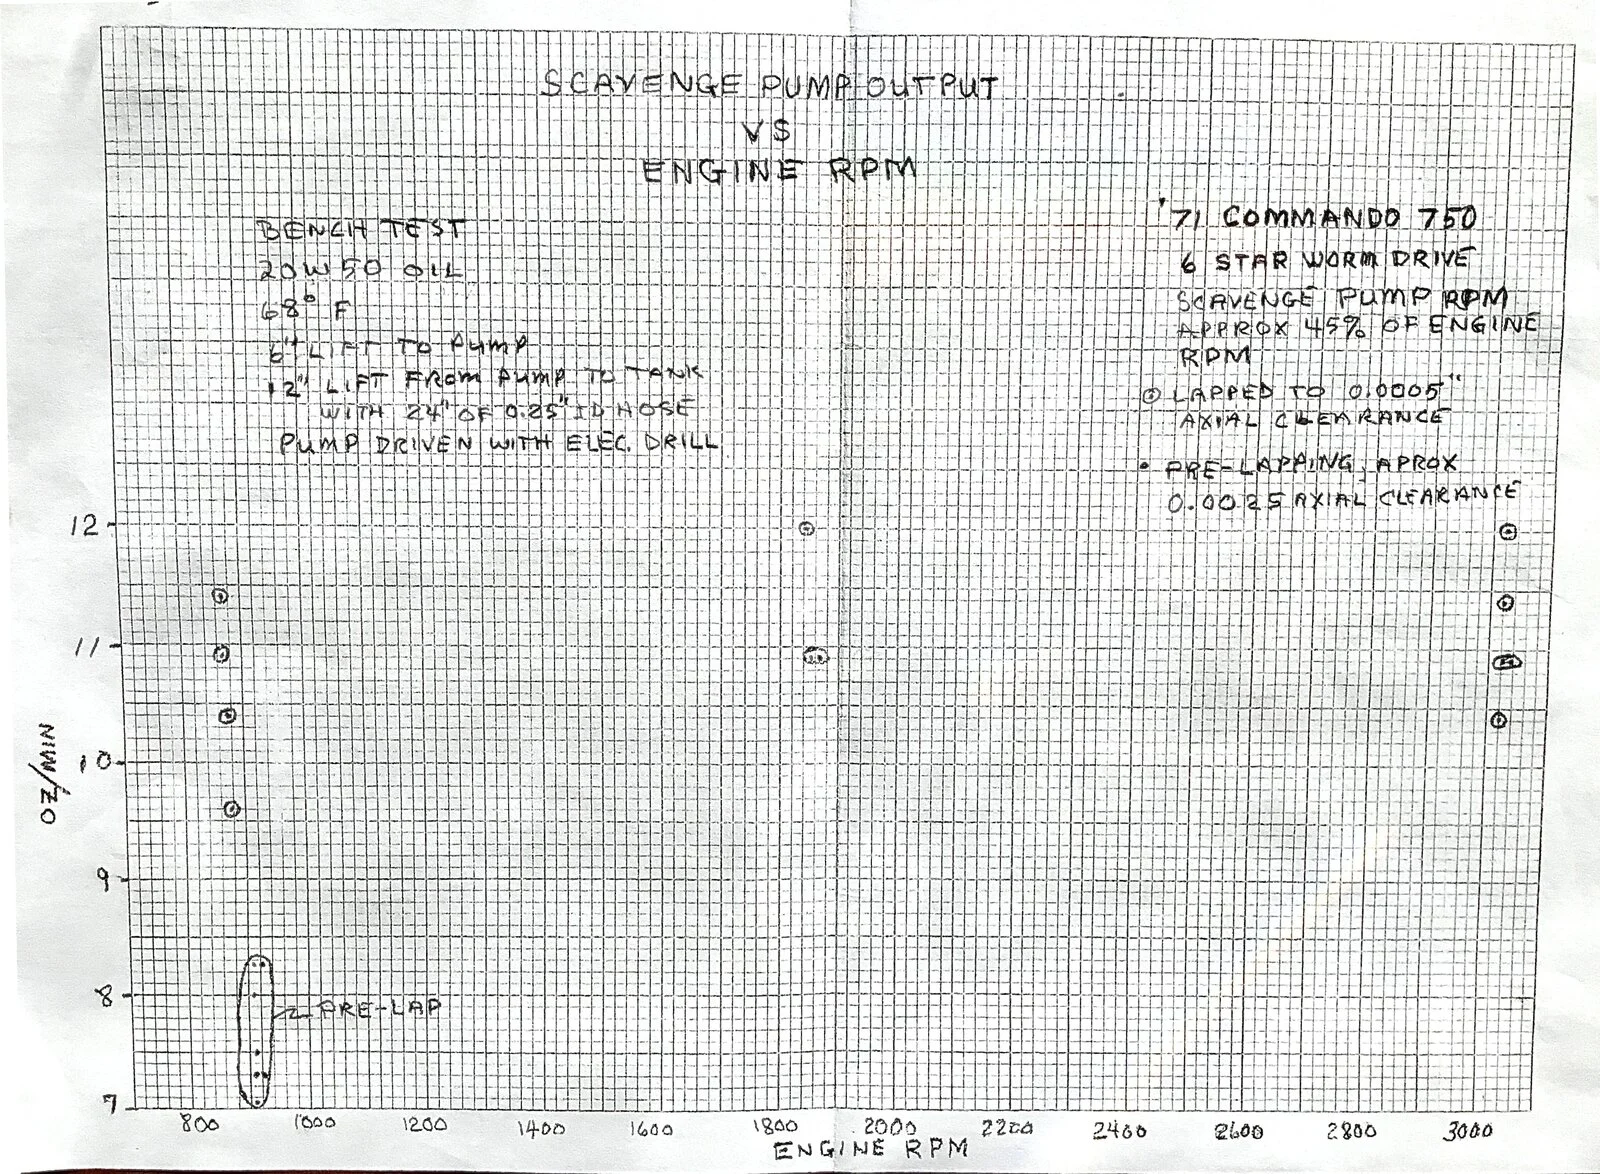 SCAVENGE PUMP OUTPUT
VS
ENGINE RPM
BENCH TEST
20W50 OIL
68° F
6" LIFT TO PUMP
12" LIFT FROM PUMP TO TANK
WITH 24" OF 0.25" ID HOSE
PUMP DRIVEN WITH ELEC. DRILL
'71 COMMANDO 750
6 STAR WORM DRIVE
SCAVENGE PUMP RPM
APPROX 45% OF ENGINE
RPM
⊙ LAPPED TO 0.0005"
AXIAL CLEARANCE
• PRE-LAPPING, APROX
0.0025 AXIAL CLEARANCE
12
11
10
9
8
7
OZ/MIN
PRE-LAP
800 1000 1200 1400 1600 1800 2000 2200 2400 2600 2800 3000
ENGINE RPM